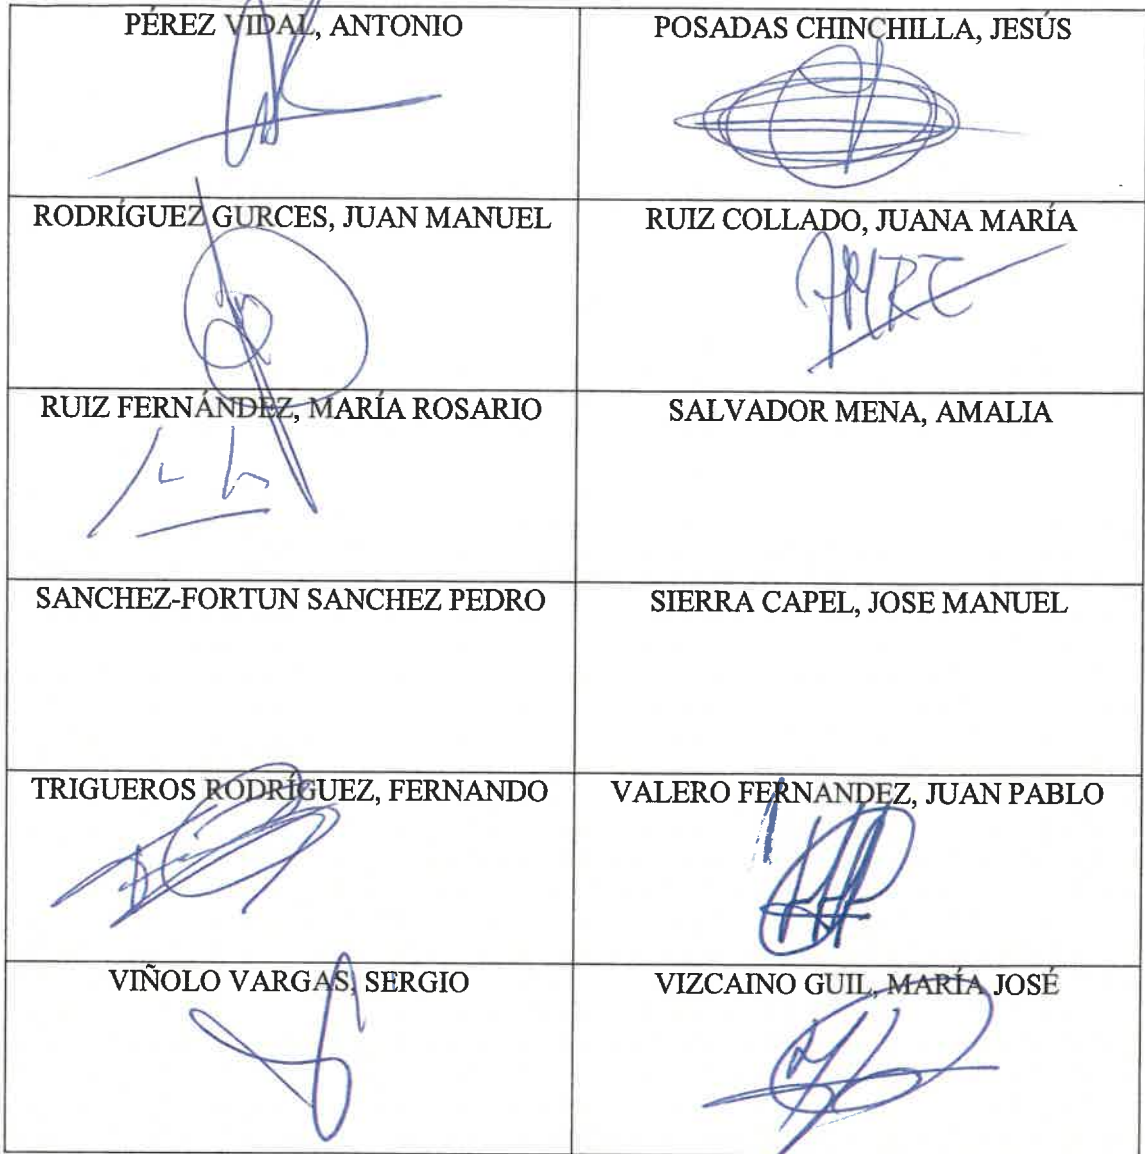 PÉREZ VIDAL, ANTONIO
POSADAS CHINCHILLA, JESÚS
RODRÍGUEZ GURCES, JUAN MANUEL
RUIZ COLLADO, JUANA MARÍA
JMRC
RUIZ FERNÁNDEZ, MARÍA ROSARIO
SALVADOR MENA, AMALIA
SANCHEZ-FORTUN SANCHEZ PEDRO
SIERRA CAPEL, JOSE MANUEL
TRIGUEROS RODRÍGUEZ, FERNANDO
VALERO FERNANDEZ, JUAN PABLO
VIÑOLO VARGAS, SERGIO
VIZCAINO GUIL, MARÍA JOSÉ